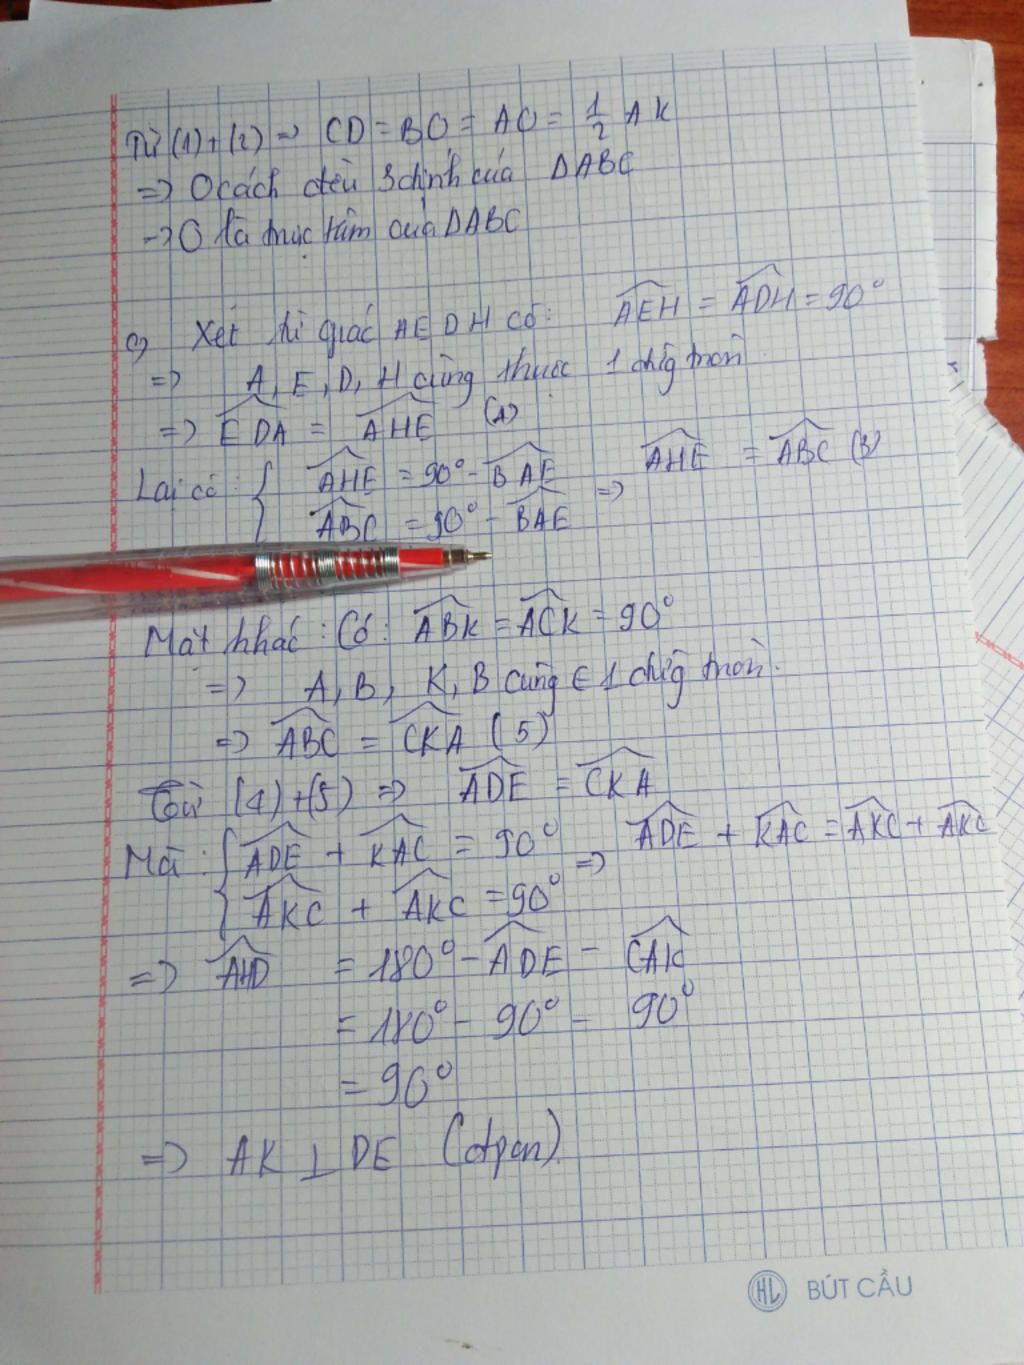 Từ (1)+(2) => CD = BO = AO = 1/2 AK
=> O cách đều 3 đỉnh của ΔABC
-> O là trực tâm của ΔABC
c) Xét tứ giác AEDH có: AEH = ADH = 90°
=> A, E, D, H cùng thuộc 1 đường tròn
=> EDA = AHE (1)
Lại có: { AHE = 90° - BAE => AHE = ABC (3)
ABC = 90° - BAE
Mặt khác: Có: ABK = ACK = 90°
=> A, B, K, B cùng ∈ 1 đường tròn.
=> ABC = CKA (5)
Từ (4)+(5) => ADE = CKA
Mà: { ADE + KAC = 90° => ADE + KAC = AKC + AKC
AKC + AKC = 90°
=> AHD = 180° - ADE - CAK
= 180° - 90° - 90°
= 90°
=> AK ⊥ DE (đpcm)
HL BÚT CẦU